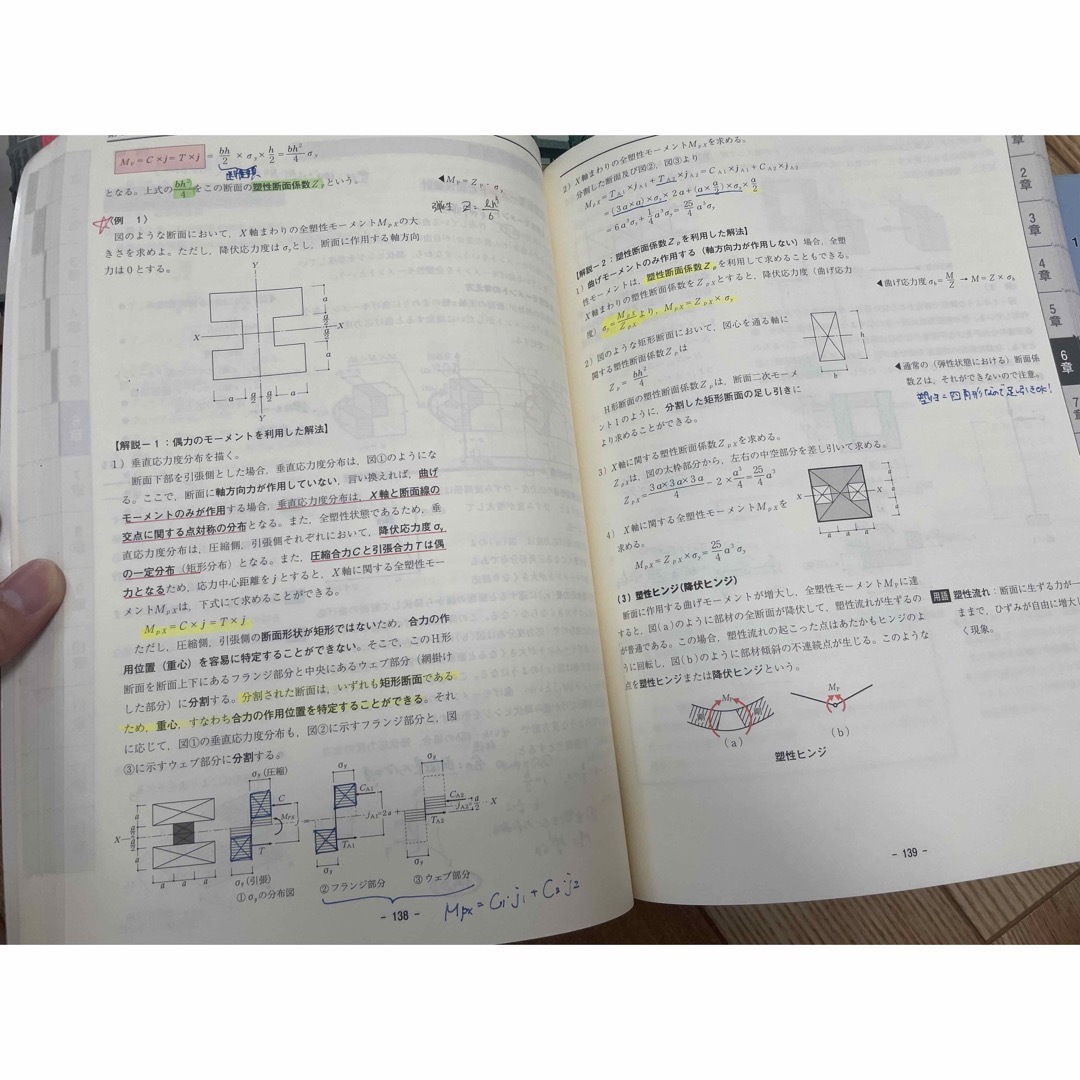 M_P = C × j = T × j = bh/2 × σ_y × h/2 = bh²/4 σ_y
となる。上式の bh²/4 をこの断面の塑性断面係数Z_Pという。
◀M_P = Z_P・σ_y
弾性 Z = bh²/6
〈例 1〉
図のような断面において，X軸まわりの全塑性モーメントM_PXの大
きさを求めよ。ただし，降伏応力度はσ_yとし，断面に作用する軸方向
力は0とする。
Y
X X
a
a/2
a/2
a
a a/2 a/2 a
Y
【解説－1：偶力のモーメントを利用した解法】
1）垂直応力度分布を描く。
断面下部を引張側とした場合，垂直応力度分布は，図①のようにな
る。ここで，断面に軸方向力が作用していない，言い換えれば，曲げ
モーメントのみが作用する場合，垂直応力度分布は，X軸と断面線の
交点に関する点対称の分布となる。また，全塑性状態であるため，垂
直応力度分布は，圧縮側，引張側それぞれにおいて，降伏応力度σ_y
の一定分布（矩形分布）となる。また，圧縮合力Cと引張合力Tは偶
力となるため，応力中心距離をjとすると，X軸に関する全塑性モー
メントM_PXは，下式にて求めることができる。
M_PX = C × j = T × j
ただし，圧縮側，引張側の断面形状が矩形ではないため，合力の作
用位置（重心）を容易に特定することができない。そこで，このH形
断面を断面上下にあるフランジ部分と中央にあるウェブ部分（網掛け
した部分）に分割する。分割された断面は，いずれも矩形断面である
ため，重心，すなわち合力の作用位置を特定することができる。それ
に応じて，図①の垂直応力度分布も，図②に示すフランジ部分と，図
③に示すウェブ部分に分割する。
σ_y（圧縮） σ_y σ_y
a a/2 a/2 a X C M_PX j T = C_A1 j_A1=2a T_A1 + C_A2 j_A2=a/2 T_A2 X
a a a σ_y（引張） σ_y σ_y
①σ_yの分布図 ②フランジ部分 ③ウェブ部分
M_PX = C₁・j₁ + C₂・j₂
- 138 -
2）X軸まわりの全塑性モーメントM_PXを求める。
分割した断面及び図②，図③より
M_PX = T_A1 × j_A1 + T_A2 × j_A2 = C_A1 × j_A1 + C_A2 × j_A2
= (3a×a) × σ_y × 2a + (a × a/2) × σ_y × a/2
= 6a³σ_y + 1/4 a³σ_y = 25/4 a³σ_y
【解説－2：塑性断面係数Z_Pを利用した解法】
1）曲げモーメントのみ作用する（軸方向力が作用しない）場合，全塑
性モーメントは，塑性断面係数Z_Pを利用して求めることもできる。
X軸まわりの塑性断面係数をZ_PXとすると，降伏応力度（曲げ応力
度）σ_y = M_PX/Z_PX より，M_PX = Z_PX × σ_y
◀曲げ応力度 σ_b = M/Z → M = Z × σ_b
2）図のような矩形断面において，図心を通る軸に
関する塑性断面係数Z_Pは
Z_P = bh²/4
H形断面の塑性断面係数Z_Pは，断面二次モーメ
ントIのように，分割した矩形断面の足し引きに
より求めることができる。
h
b
◀通常の（弾性状態における）断面係
数Zは，それができないので注意。
塑性＝四角形なので足し引きOK!
3）X軸に関する塑性断面係数Z_PXを求める。
Z_PXは，図の太枠部分から，左右の中空部分を差し引いて求める。
Z_PX = 3a×3a×3a/4 − 2 × a³/4 = 25/4 a³
4）X軸に関する全塑性モーメントM_PXを
求める。
M_PX = Z_PX × σ_y = 25/4 a³σ_y
X X
a
a
a
a a a
（3）塑性ヒンジ（降伏ヒンジ）
断面に作用する曲げモーメントが増大し，全塑性モーメントM_Pに達
すると，図(a)のように部材の全断面が降伏して，塑性流れが生ずるの
が普通である。この場合，塑性流れの起こった点はあたかもヒンジのよ
うに回転し，図(b)のように部材傾斜の不連続点が生じる。このような
点を塑性ヒンジまたは降伏ヒンジという。
用語 塑性流れ：断面に生ずる力が一
ままで，ひずみが自由に増大し
く現象。
M_P M_P
(a) (b)
塑性ヒンジ
- 139 -
章
2章
3章
4章
5章
6章
7